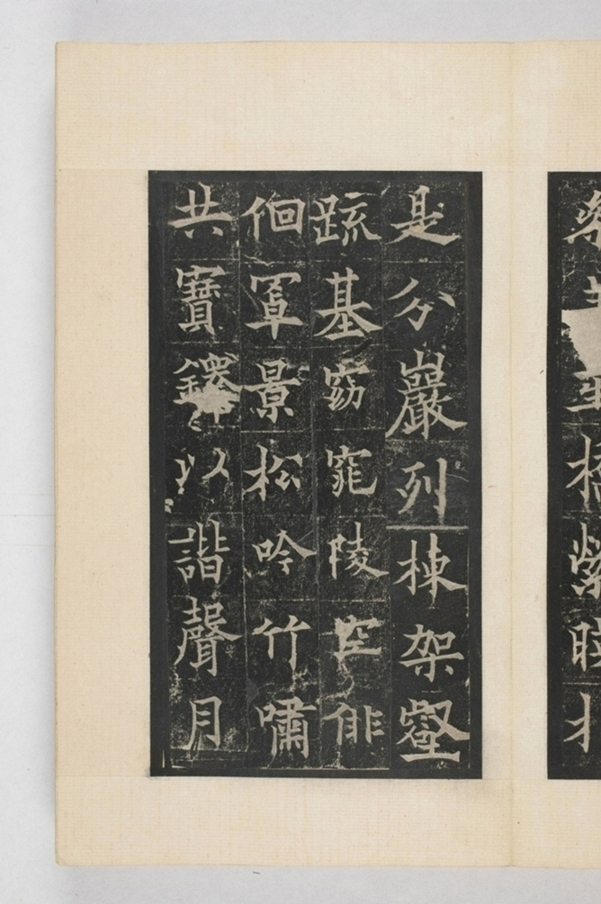 是分巖列棟架壑
疏基窈窕陵空俳
佪罩景松吟竹嘯
共寶鐸以諧聲月